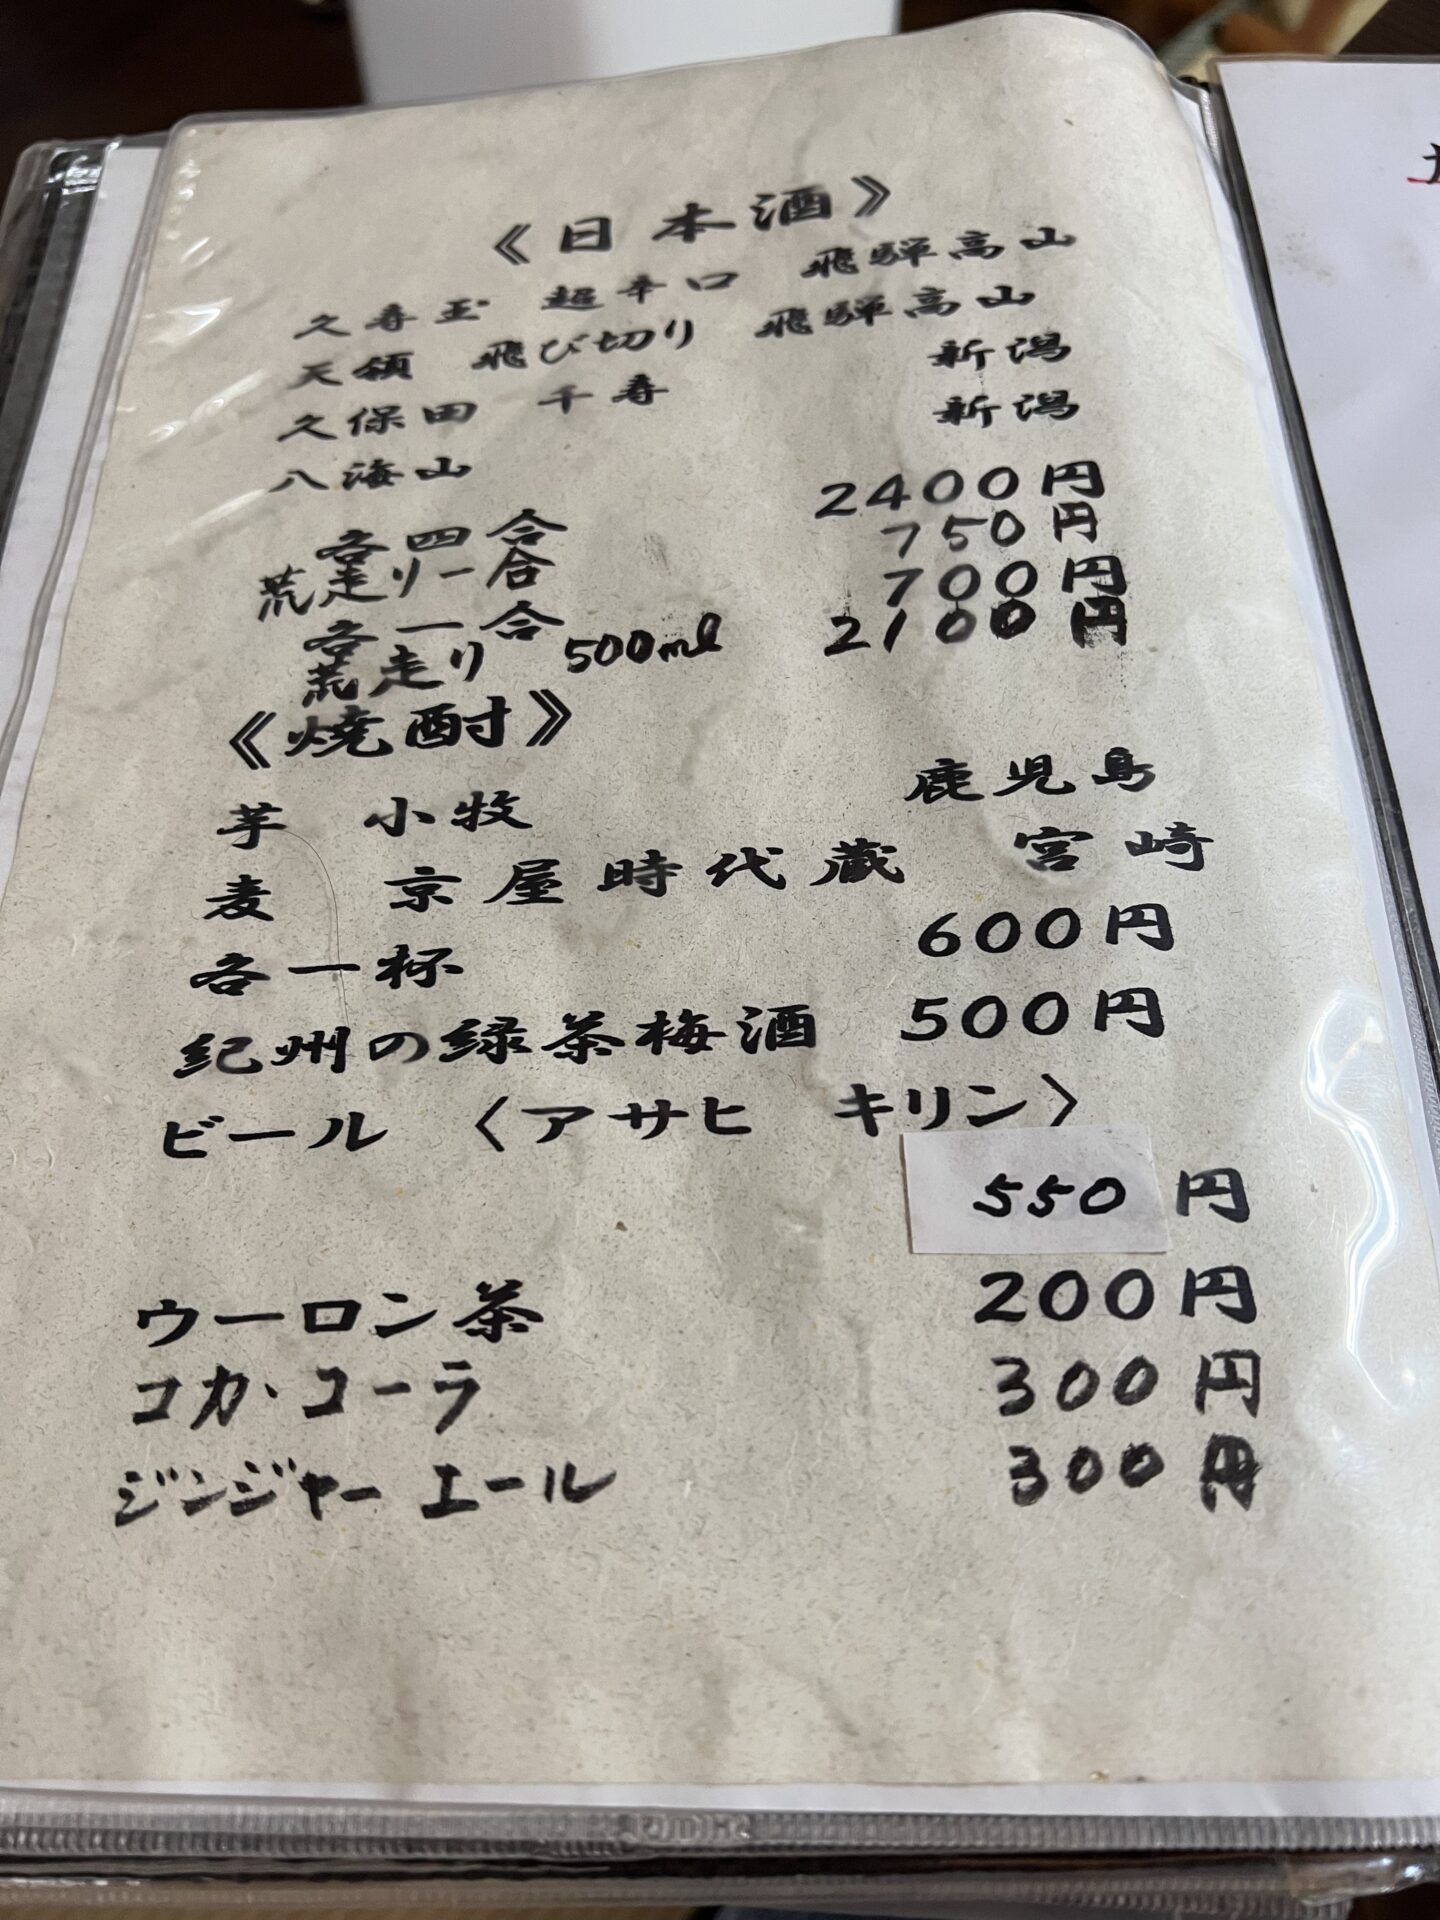 《日本酒》
久寿玉 超辛口 飛騨高山
天領 飛び切り 飛騨高山
久保田 千寿 新潟
八海山 新潟
各四合 2400円
荒走り一合 750円
各一合 700円
荒走り 500ml 2100円
《焼酎》
芋 小牧 鹿児島
麦 京屋時代蔵 宮崎
各一杯 600円
紀州の緑茶梅酒 500円
ビール 〈アサヒ キリン〉
550円
ウーロン茶 200円
コカ・コーラ 300円
ジンジャーエール 300円